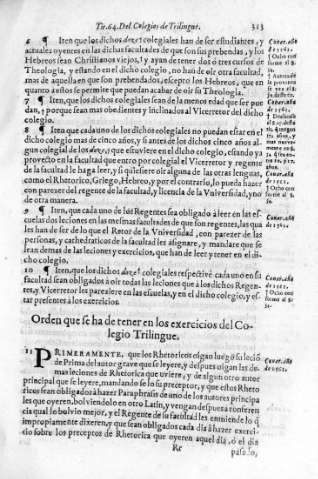 Tit.64. Del Colegios de Trilingue. 323
6 ¶ Iten que los dichos doze colegiales han de ser estudiantes, y
actuales oyentes en las dichas facultades de que son sus prebendas, y los
Hebreos sean Christianos viejos, y ayan de tener dos ó tres cursos de
Theologia, y estando en el dicho colegio, no han de oir otra facultad,
mas de aquella en que son prebendados, excepto los Hebreos, que en
quanto a estos se permite que puedan acabar de oir su Theologia.
7 ¶ Iten, que los dichos colegiales sean de la menor edad que ser pue
dan, y porque sean mas obedientes y inclinados al Vicerretor del dicho
colegio.
8 ¶ Iten que cada uno de los dichos colegiales no puedan estar en el
dicho colegio mas de cinco años, y si antes de los dichos cinco años al-
gun colegial de los doze, que estuviere en el dicho colegio, estando ya
provecto en la facultad que entro por colegial el Vicerretor y regente
de la facultad le haga leer, y si quisiere oir alguna de las otras lenguas,
como el Rhetorico, Griego, Hebreo, y por el contrario, lo pueda hazer
con parecer del regente de la facultad, y licencia de la Vniversidad, y no
de otra manera.
9 ¶ Iten, que cada uno de los Regentes sea obligado à leer en las es-
cuelas dos lectiones en las mesmas facultades de que son regentes, las que
les han de ser de lo que el Retor de la Vniversidad, con parecer de las
personas, y cathedraticos de la facultad les asignare, y mandare que se
lean demas de las lectiones y exercicios, que han de leer y tener en el di-
cho colegio.
10 ¶ Iten, que los dichos doze colegiales respectivè cada uno en su
facultad sean obligados à oir todas las lectiones que à los dichos Regen-
tes, y Vicerretor les pareciere en las escuelas, y en el dicho colegio, y es-
tar presentes à los exercicios.
Orden que se ha de tener en los exercicios del Co-
legio Trilingue.
11 PRIMERAMENTE, que los Rhetoricos oigan luego su leciõ
de Prima del autor grave que se leyere, y despues oigan las de-
mas lectiones de Rhetorica que uviere, y de algun otro autor
principal que se leyere, mandando se lo su preceptor, y que estos Rheto
ricos sean obligados à hazer Paraphrasis de uno de los autores principa
les que oyeren, bolviendolo en otro Latin, y vengan despues à conferen
cia qual lo bolvio mejor, y el Regente de su facultad les enmiende lo q̃
impropiamente dixeren, y que sean obligados cada dia à hazer exerci-
cio sobre los preceptos de Rhetorica que oyeren aquel dia, ó el dia
Rr passado,